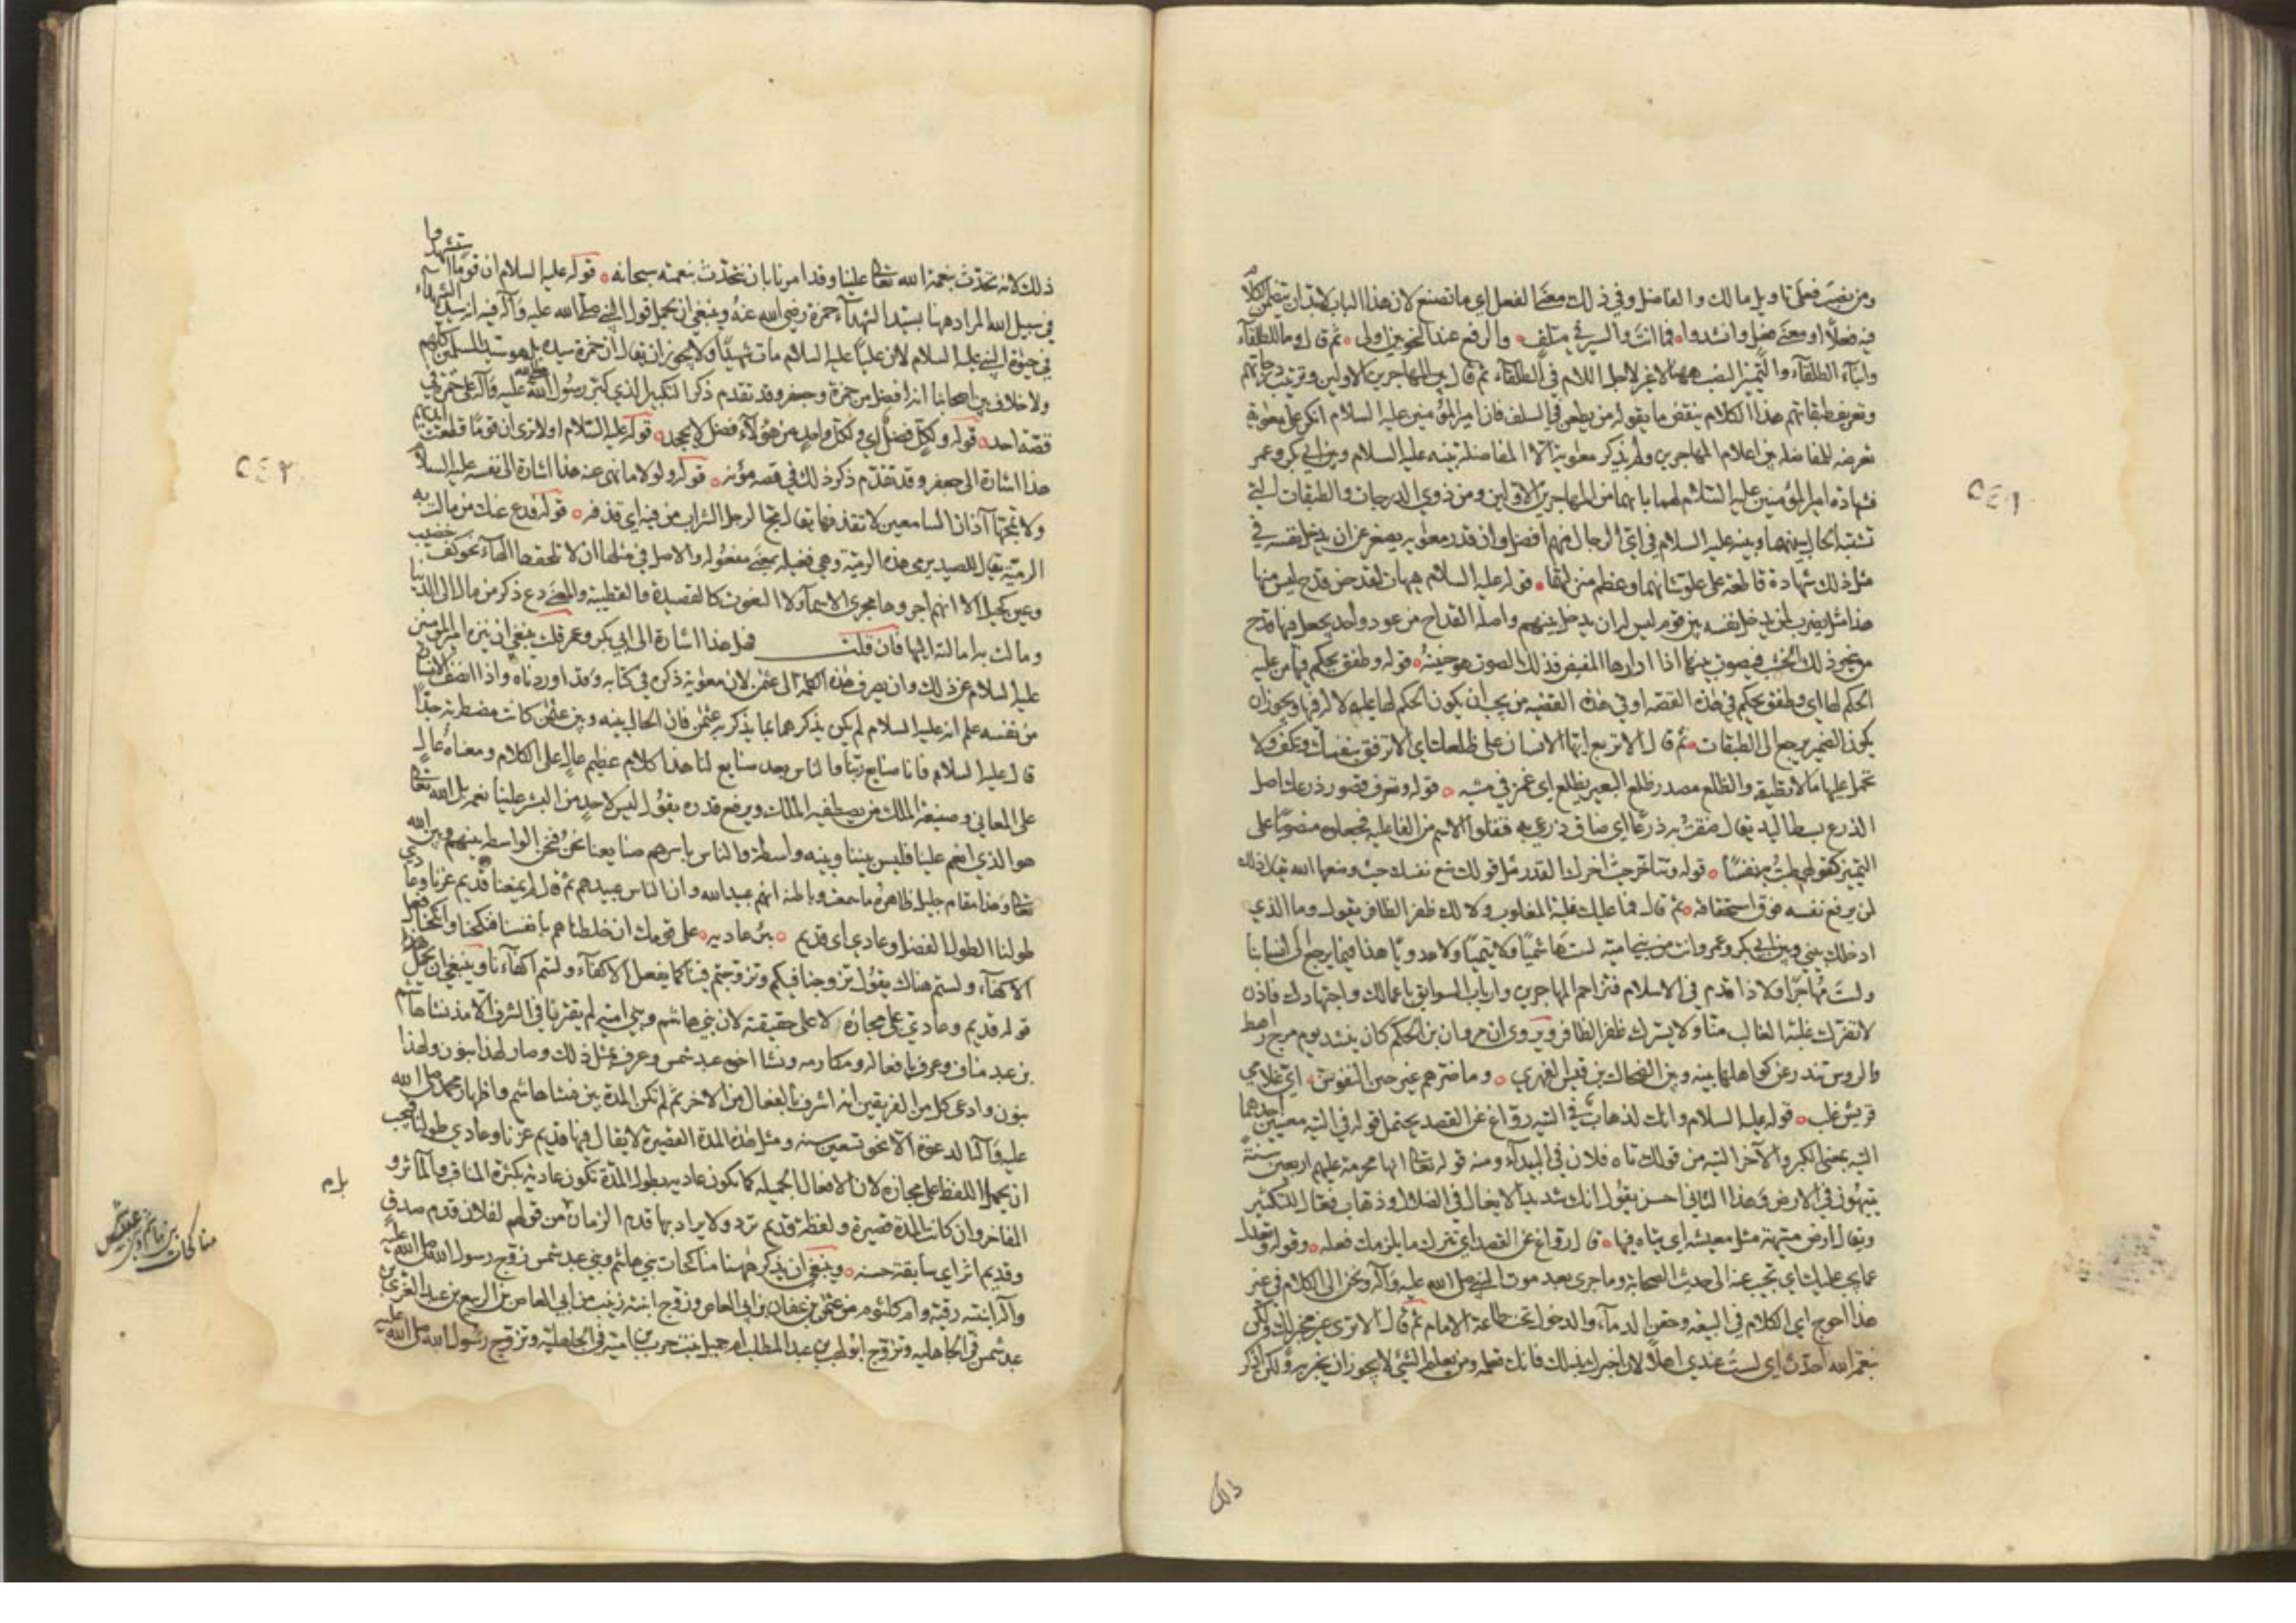 ومن نصب فعلى تاويل مالك والفاضل وفي ذلك معنى الفعل اي ما تصنع لان هذا الباب لا بد ان يتضمن الكلام
فيه فعلا او معنى فعل وانشدوا فما انت والسير في متلف والرفع عند النحويين اولى ثم قال وما للطلقاء
وابناء الطلقاء والتمييز النصب ههنا لا غير لاجل اللام في الطلقاء ثم قال بين المهاجرين الاولين وترتيب درجاتهم
وتعريف طبقاتهم هذا الكلام ينقض ما يقوله من يطعن في السلف فان امير المؤمنين عليه السلام انكر على معوية
تعرضه للمفاضلة بين اعلام المهاجرين ولم يذكر معوية الا المفاضلة بينه عليه السلام وبين ابي بكر وعمر
فشهادة امير المؤمنين عليه السلام لهما بانهما من المهاجرين الاولين ومن ذوي الدرجات والطبقات التي
تشتبه الحال بينهما وبينه عليه السلام في اي الرجال منهم افضل وان قدر معوية يصغر عن ان يدخل نفسه في
مثل ذلك شهادة قاطعة على علو شانهما وعظم منزلتهما قوله عليه السلام هيهات لقد حن قدح ليس منها
هذا مثل يضرب لمن يدخل نفسه بين قوم ليس له ان يدخل بينهم واصله القداح من عود واحد يجعل فيها قدح
من غير ذلك الخشب فيصوت بينها اذا ارادها المفيض فذلك الصوت هو حنينه قوله وطفق يحكم فيها من عليه
الحكم لها اي وطفق يحكم في هذه القصة او في هذه القضية من يجب ان يكون الحكم لها عليه لا له فيها ويجوز ان
يكون الضمير يرجع الى الطبقات ثم قال الا تربع ايها الانسان على ظلعك اي الا ترفق بنفسك وتكف ولا
تحمل عليها ما لا تطيقه والظلع مصدر ظلع البعير يظلع اي غمز في مشيه قوله وتعرف قصور ذرعك اصل
الذرع بسط اليد يقال ضقت به ذرعا اي ضاق ذرعي به فنقلوا الاسم من الفاعلية فجعلوه منصوبا على
التمييز كقولهم طبت به نفسا قوله وتتاخر حيث اخرك القدر مثل قولك ضع نفسك حيث وضعها الله يقال ذلك
لمن يرفع نفسه فوق استحقاقه ثم قال فما عليك غلبة المغلوب ولا لك ظفر الظافر يقول وما الذي
ادخلك بيني وبين ابي بكر وعمر وانت من بني امية لست هاشميا ولا تيميا ولا عدويا هذا فيما يرجع الى انسابنا
ولست مهاجرا ولا ذا قدم في الاسلام فتزاحم المهاجرين وارباب السوابق باعمالك واجتهادك فاذن
لا تضرك غلبة الغالب منا ولا يسرك ظفر الظافر ويروى ان مروان بن الحكم كان ينشد يوم مرج راهط
والروس تندر عن كواهلها بينه وبين الضحاك بن قيس الفهري وما ضرهم غير حين النفوس اي غلامي
قريش غلب قوله عليه السلام وانك لذهاب في التيه رواغ عن القصد يحتمل قوله في التيه معنيين احدهما
التيه بمعنى الكبر والآخر التيه من قولك تاه فلان في البيداء ومنه قوله تعالى انها محرمة عليهم اربعين سنة
يتيهون في الارض وهذا الثاني احسن يقول انك شديد الايغال في الضلال وذهاب فعال للتكثير
ويقال ارض متيهة مثل معيشه اي يتاه فيها قال رواغ عن القصد اي تترك ما يلزمك فعله وقوله وتعدل
عما يجب عليك اي تجيب عنه الى حديث الصحابة وما جرى بعد موت النبي صلى الله عليه وآله ونحن الى الكلام في غير
هذا احوج اي الكلام في البيعه وحقن الدماء والدخول تحت طاعة الامام ثم قال الا ترى غير مخبر لك ولكن
بنعمة الله احدث اي لست عندي اهلا لان اخبرك بذلك فانك تعلمه ومن يعلم الشيء لا يجوز ان يخبر به ولكن اذكر
ذلك
ذلك لانه تحدث بنعمة الله تعالى علينا وقد امرنا بان نتحدث بنعمته سبحانه قوله عليه السلام ان قوما استشهدوا
في سبيل الله المراد ههنا بسيد الشهداء حمزة رضي الله عنه وينبغي ان يحمل قول النبي صلى الله عليه وآله فيه انه سيد الشهداء
في حيوة النبي عليه السلام لان عليا عليه السلام مات شهيدا ولا يجوز ان يقال ان حمزة سيده بل هو سيد المسلمين كلهم
ولا خلاف بين اصحابنا انه افضل من حمزة وجعفر وقد تقدم ذكر التكبير الذي كبر رسول الله صلى الله عليه وآله على حمزة في
قصة احد قوله ولكل فضل اي ولكل واحد من هؤلاء فضل لا يجحد قوله عليه السلام اولا ترى ان قوما قطعت ايديهم
هذا اشارة الى جعفر وقد تقدم ذكر ذلك في قصه مؤتة قوله ولولا ما نهى عنه هذا اشارة الى نفسه عليه السلام
ولا تمجها آذان السامعين لا تقذفها يقال مج الرجل الشراب من فيه اي قذفه قوله فدع عنك من مالت به
الرمية يقال للصيد يرمى هذه الرمية وهي فعيلة بمعنى مفعولة والاصل في مثلها ان لا تلحقها الهاء نحو كف خضيب
وعين كحيل الا انهم اجروها مجرى الاسماء لا النعوت كالقصيدة والقطيعة والمعنى دع ذكر من مال الى الدنيا
ومالت به امالته اليها فان قلت فهل هذا اشارة الى ابي بكر وعمر قلت ينبغي ان ينزه امير المؤمنين
عليه السلام عن ذلك وان يصرف هذه الكلمة الى عثمن لان معوية ذكره في كتابه وقد اوردناه واذا انصف الانسان
من نفسه علم انه عليه السلام لم يكن يذكرهما بما يذكر به عثمن فان الحال بينه وبين عثمن كانت مضطربة جدا
قال عليه السلام فانا صنايع ربنا والناس بعد صنايع لنا هذا كلام عظيم عال على الكلام ومعناه عال
على المعاني وصنيعة الملك من يصطفيه الملك ويرفع قدره يقول ليس لاحد من البشر علينا نعم بل الله تعالى
هو الذي انعم علينا فليس بيننا وبينه واسطة والناس باسرهم صنايعنا نحن فنحن الواسطة بينهم وبين الله
تعالى وهذا مقام جليل ظاهره ما سمعت وباطنه انهم عبيد الله وان الناس عبيدهم ثم قال لم يمنعنا قديم عزنا وعادي
طولنا الطول الفضل وعادي اي قديم بئر عاديه على قومك ان خلطناهم بانفسنا فنكحنا وانكحنا فعل
الاكفاء ولستم هناك يقول تزوجنا فيكم وتزوجتم فينا كما يفعل الاكفاء ولستم اكفاءنا وينبغي ان يحمل هذا
قوله قديم وعادي على مجازه لا على حقيقته لان بني هاشم وبني امية لم يفترقا في الشرف الا مذ نشا هاشم
بن عبد مناف وعرف بافعاله ومكارمه ونشا اخوه عبد شمس وعرف بمثل ذلك وصار لهذا بنون ولهذا
بنون وادعى كل من الفريقين انه اشرف بالفعال من الآخر ثم لم تكن المدة بين نشا هاشم واظهار محمد صلى الله
عليه وآله الدعوة الا نحو تسعين سنه ومثل هذه المدة القصيرة لا يقال فيها قديم عزنا وعادي طولنا فيجب
ان يحمل اللفظ على مجازه لان الافعال الجميلة كما تكون عاديه بطول المدة تكون عادية بكثرة المناقب والمآثر و
المفاخر وان كانت المدة قصيرة ولفظة قديم ترد ولا يراد بها قدم الزمان من قولهم لفلان قدم صدق
وقديم اثر اي سابقة حسنه وينبغي ان يذكر ههنا مناكحات بني هاشم وبني عبد شمس زوج رسول الله صلى الله عليه
وآله ابنتيه رقية وام كلثوم من عثمن بن عفان بن ابي العاص وزوج ابنته زينب من ابي العاص بن الربيع بن عبد العزى بن
عبد شمس في الجاهلية وتزوج ابو لهب بن عبد المطلب ام جميل بنت حرب بن امية في الجاهلية وتزوج رسول الله صلى الله عليه
مناكحات بني هاشم وبني عبد شمس